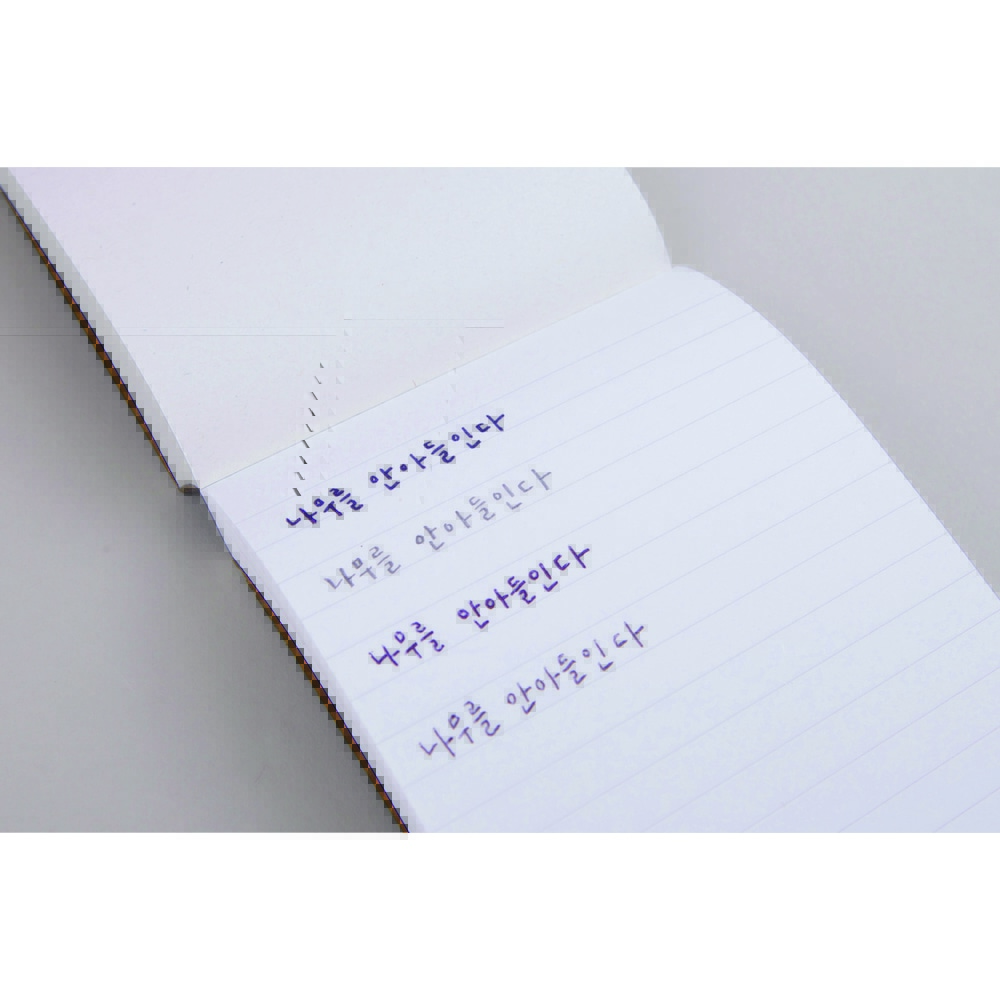 나무를 안아들인다
나무를 안아들인다
나무를 안아들인다
나무를 안아들인다